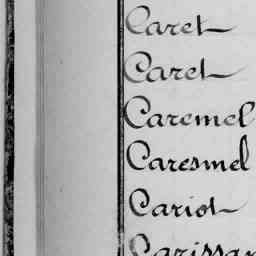 Caret
Caret
Caremel
Caresmel
Cariot